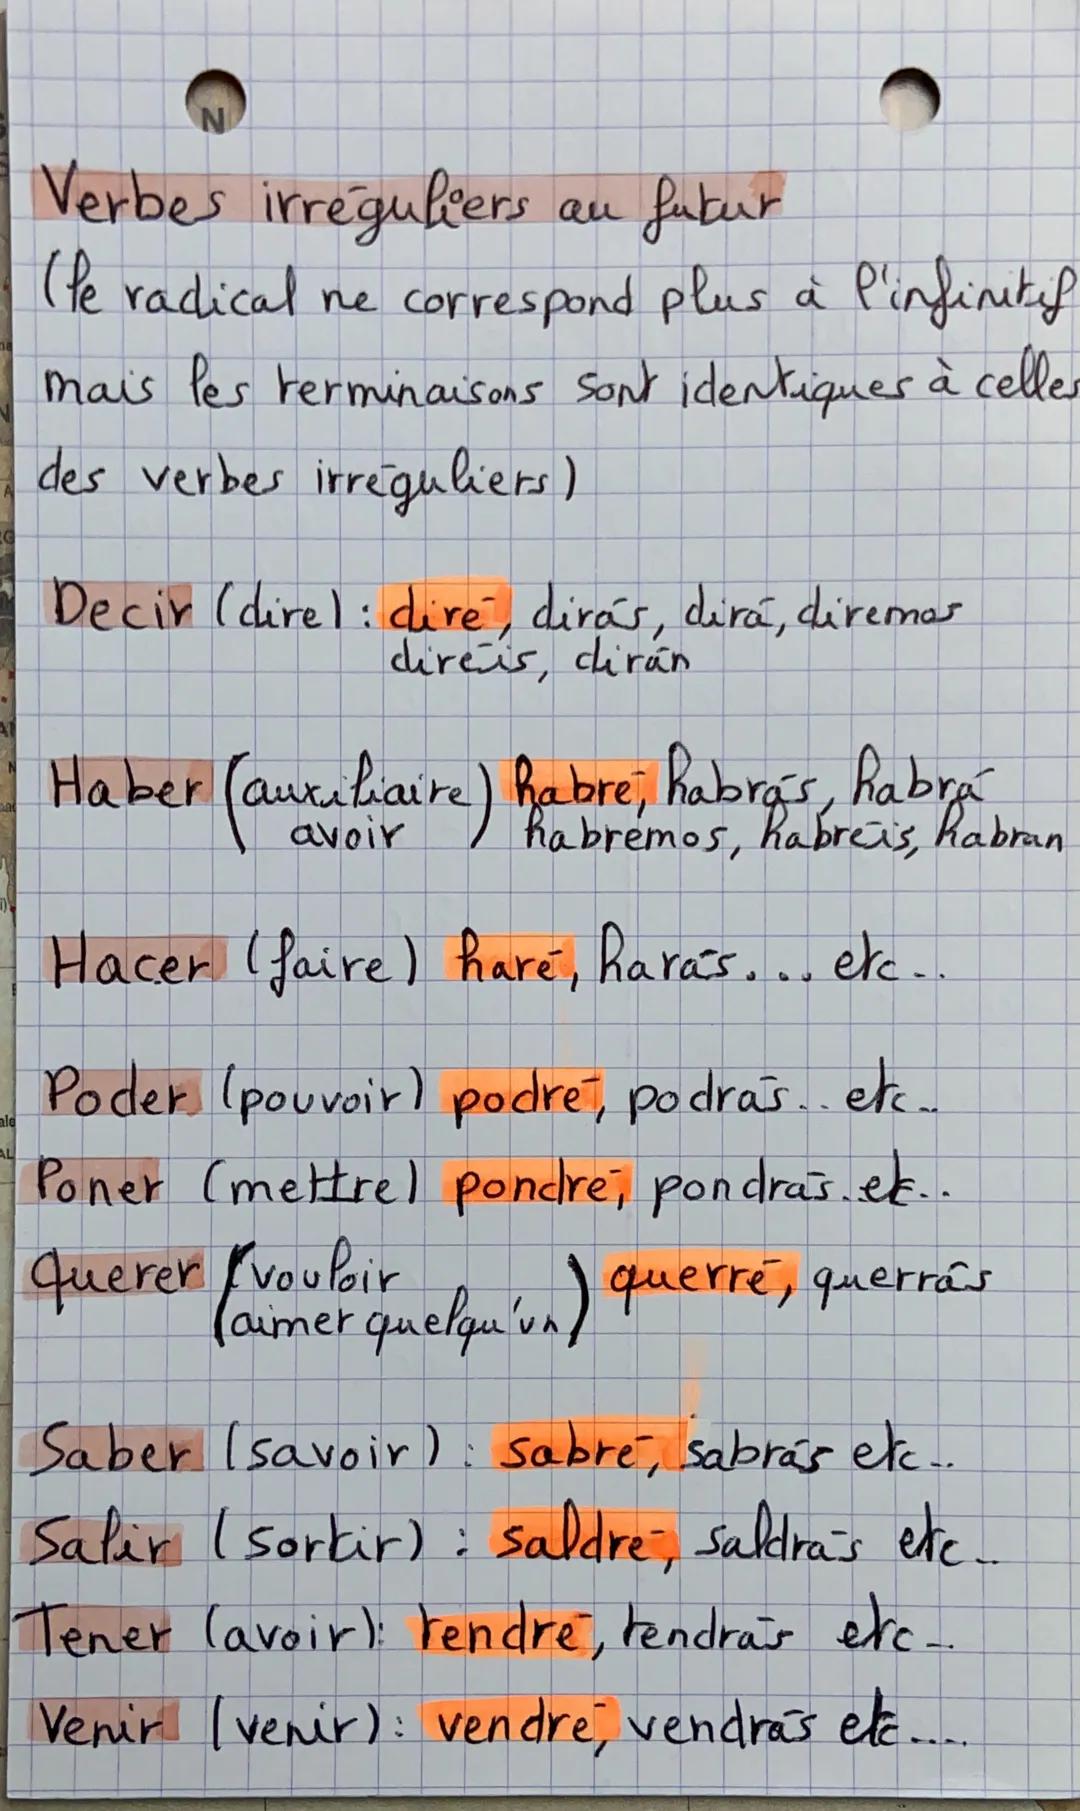 N
Verbes irréguliers au futur
(le radical ne correspond plus à l'infinitif
mais les terminaisons sont identiques à celles
des verbes irréguliers)
Decir (dire) : diré, dirás, dirá, diremos
diréis, dirán
Haber (auxiliaire) habré, habrás, habrá
avoir habrémos, habréis, habran
Hacer (faire) haré, harás.... etc..
Poder (pouvoir) podré, podrás.. etc..
Poner (mettre) pondré, pondrás. etc..
Querer (vouloir querré, querrás
aimer quelqu'un)
Saber (savoir) : sabré, sabrás etc..
Salir (sortir) : saldré, saldrás etc..
Tener (avoir): tendré, tendrás etc..
Venir (venir): vendré, vendrás etc....